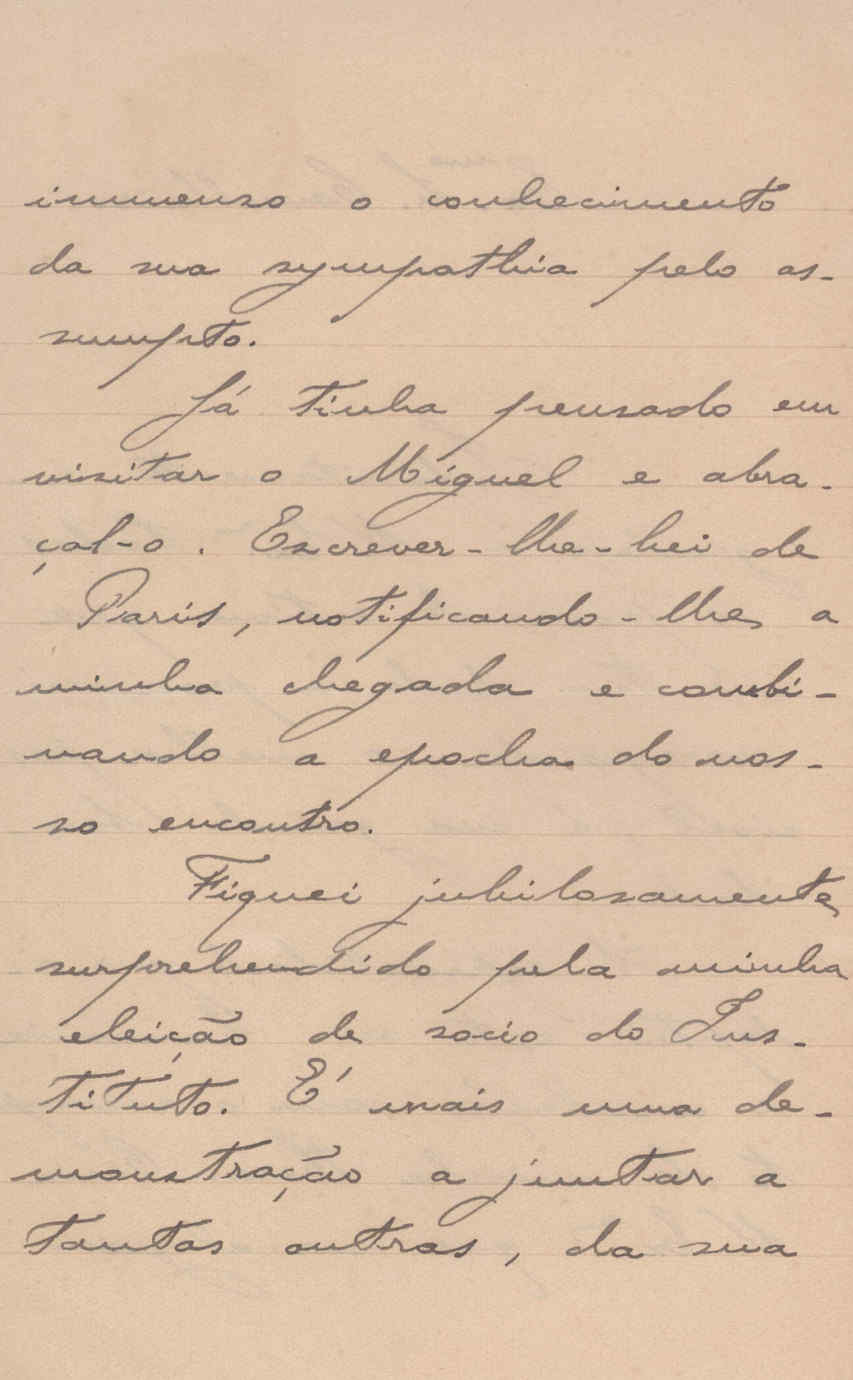 immenso o conhecimento
da sua sympathia pelo as-
sumpto.
Já tinha pensado em
visitar o Miguel e abra-
çal-o. Escrever-lhe-hei de
Paris, notificando-lhe a
minha chegada e combi-
nando a epocha do nos-
so encontro.
Fiquei jubilosamente
surprehendido pela minha
eleição de socio do Ins-
tituto. É mais uma de-
monstração a juntar a
tantas outras, da sua